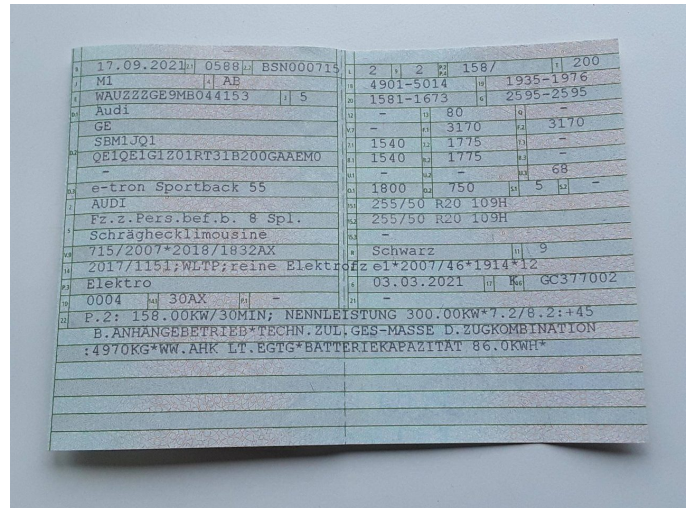 B 17.09.2021 2.1 0588 2.2 BSN000715
J M1 4 AB
E WAUZZZGE9MB044153 3 5
D.1 Audi
GE
D.2 SBM1JQ1
QE1QE1G1Z01RT31B200GAAEM0
-
D.3 e-tron Sportback 55
2 AUDI
5 Fz.z.Pers.bef.b. 8 Spl.
Schräghecklimousine
V.9 715/2007*2018/1832AX
14 2017/1151;WLTP;reine Elektrofz
P.3 Elektro
10 0004 14.1 30AX P.1 -
L 2 9 2 P.2 P.4 158/ T 200
18 4901-5014 19 1935-1976
20 1581-1673 G 2595-2595
12 - 13 80 Q -
V.7 - F.1 3170 F.2 3170
7.1 1540 7.2 1775 7.3 -
8.1 1540 8.2 1775 8.3 -
U.1 - U.2 - U.3 68
O.1 1800 O.2 750 S.1 5 S.2 -
15.1 255/50 R20 109H
15.2 255/50 R20 109H
15.3 -
R Schwarz 11 9
K e1*2007/46*1914*12
6 03.03.2021 17 K 16 GC377002
21 -
22 P.2: 158.00KW/30MIN; NENNLEISTUNG 300.00KW*7.2/8.2:+45
B.ANHÄNGEBETRIEB*TECHN.ZUL.GES-MASSE D.ZUGKOMBINATION
:4970KG*WW.AHK LT.EGTG*BATTERIEKAPAZITÄT 86.0KWH*